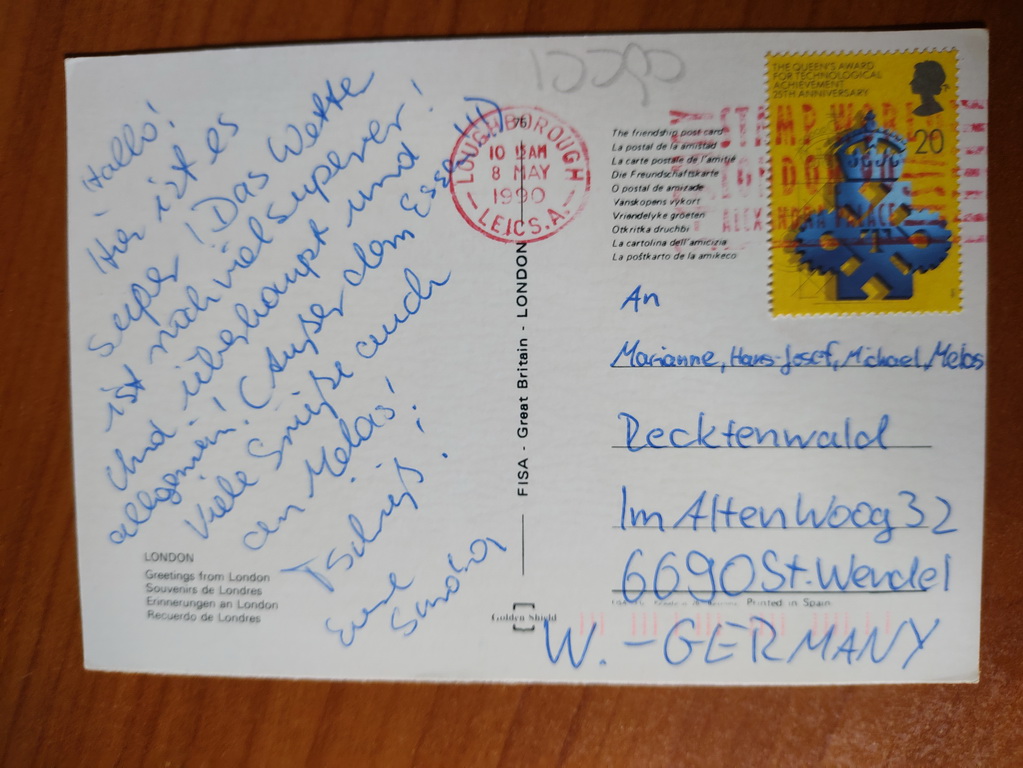 Hallo!
Hier ist es
super! Das Wetter
ist noch viel superer!
Und überhaupt und
allgemein! (Außer dem Essen!!!)
Viele Grüße auch
an Melos!
Tschüß!
Eure
Sandra
LONDON
Greetings from London
Souvenirs de Londres
Erinnerungen an London
Recuerdo de Londres
FISA - Great Britain - LONDON
76
Golden Shield
LOUGHBOROUGH
10 AM
8 MAY
1990
LEICS.A.
STAMP WORLD
LONDON
ALEXANDRA PALACE
THE QUEEN'S AWARD
FOR TECHNOLOGICAL
ACHIEVEMENT
25TH ANNIVERSARY
20
The friendship post card
La postal de la amistad
La carte postale de l'amitié
Die Freundschaftskarte
O postal de amizade
Vanskopens vykort
Vriendelyke groeten
Otkritka druchbi
La cartolina dell'amicizia
La poŝtkarto de la amikeco
An
Marianne, Hans-Josef, Michael, Melos
Recktenwald
Im Alten Woog 32
6690 St. Wendel
Printed in Spain
W.-GERMANY